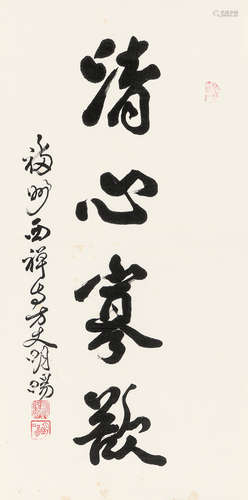 清心寡欲
福州西禅寺方丈明旸